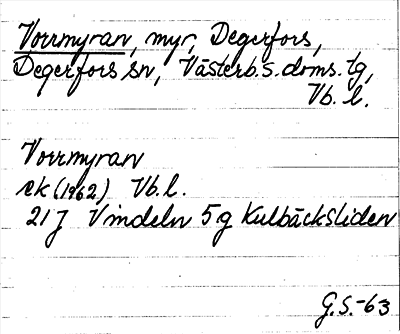 Vorrmyran, myr, Degerfors,
Degerfors sn, Västerb. s. doms. tg,
Vb. l.
Vorrmyran
ek (1962) Vb. l.
21 J Vindeln 5 g Kulbäcksliden
G.S.-63